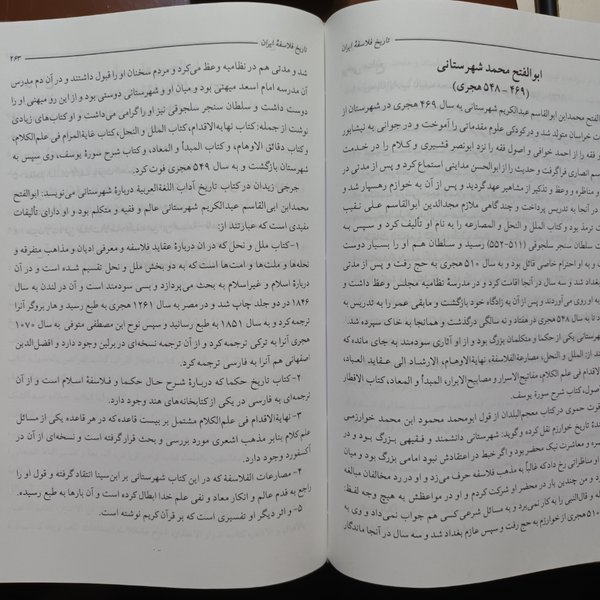 تاریخ فلاسفهٔ ایران
ابوالفتح محمد شهرستانی
(۴۶۹ - ۵۴۸ هجری)
الفتح محمدابن ابوالقاسم عبدالکریم شهرستانی به سال ۴۶۹ هجری در شهرستان از
خراسان متولد شد و در کودکی علوم مقدماتی را آموخت و در جوانی به نیشابور
فقه را از احمد خوافی و اصول فقه را نزد ابونصر قشیری و کلام را در خدمت
انصاری فراگرفت و حدیث را از ابوالحسن مداینی استماع کرد و پس از مدتی در
و مناظره و وعظ و تذکیر از مشاهیر عهد گردید و پس از آن به خوارزم رهسپار شد و
در آنجا به تدریس پرداخت و چند گاهی ملازم مجدالدین ابوالقاسم علی نقیب
ترمذ بود و کتاب الملل و النحل و المصارعه را به نام او تألیف کرد و سپس به
سلطان سنجر سلجوقی (۵۱۱-۵۵۲) رسید و سلطان هم او را بسیار دوست
و به او احترام خاصی قائل بود و به سال ۵۱۰ هجری به حج رفت و پس از مدتی
بغداد شد و سه سال در آنجا اقامت کرد و در مدرسهٔ نظامیه مجلس وعظ داشت و
به او روی می‌آوردند و پس از آن به زادگاه خود بازگشت و مابقی عمر را به تدریس به
تا به سال ۵۴۸ هجری در هفتاد و نه سالگی درگذشت و همانجا به خاک سپرده شد.
شهرستانی یکی از حکما و متکلمان بزرگ بود و از او آثاری سودمند به جای مانده که
از: الملل و النحل، مصارعةالفلاسفة، نهایةالاوهام، الارشاد الی عقاید العباد،
الاقدام فی علم الکلام، مفاتیح‌الاسرار و مصابیح‌الابرار، المبدأ و المعاد، کتاب الاقطار
الاصول، کتاب شرح سورهٔ یوسف.
یاقوت حموی در کتاب معجم‌البلدان از قول ابومحمد محمود ابن محمد خوارزمی
تاریخ خوارزم نقل کرده و گوید: شهرستانی دانشمند و فقیهی بزرگ بود و در
و معاشرت نیک محضر بود و اگر خبط در اعتقادش نبود امامی بزرگ بود و میان
او مناظراتی رخ داد که غالباً به مذهب فلاسفه حرف می‌زد و او در رد مخالفان مبالغه
و من چندین بار در محضر او شرکت کردم و او در مواعظش به هیچ وجه لفظ:
و قال‌النبی را به کار نمی‌برد و به مسائل شرعی کسی هم جواب نمی‌داد و وی به
۵۱۰ هجری از خوارزم به حج رفت و سپس عازم بغداد شد و سه سال در آنجا ماندگار
تاریخ فلاسفهٔ ایران
۲۶۳
شد و مدتی هم در نظامیه وعظ می‌کرد و مردم سخنان او را قبول داشتند و در آن دم مدرس
آن مدرسه امام اسعد میهنی بود و میان او و شهرستانی دوستی بود و از این رو میهنی او را
دوست داشت و سلطان سنجر سلجوقی نیز او را گرامی می‌داشت و او کتاب‌های زیادی
نوشت از جمله: کتاب نهایةالاقدام، کتاب الملل و النحل، کتاب غایةالمرام فی علم‌الکلام،
و کتاب دقائق الاوهام، و کتاب المبدأ و المعاد، و کتاب شرح سورهٔ یوسف، وی سپس به
شهرستان بازگشت و به سال ۵۴۹ هجری فوت کرد.
جرجی زیدان در کتاب تاریخ آداب اللغة‌العربیة دربارهٔ شهرستانی می‌نویسد: ابوالفتح
محمدابن ابی‌القاسم عبدالکریم شهرستانی عالم و فقیه و متکلم بود و او دارای تألیفات
مفیدی است که عبارتند از:
۱- کتاب ملل و نحل که در آن دربارهٔ عقاید فلاسفه و معرفی ادیان و مذاهب متفرقه و
نحله‌ها و ملت‌ها و امت‌ها است که به دو بخش ملل و نحل تقسیم شده است و در آن
دربارهٔ اسلام و غیراسلام به بحث می‌پردازد و بسی سودمند است و آن در لندن به سال
۱۸۴۶ در دو جلد چاپ شد و در مصر به سال ۱۲۶۱ هجری به طبع رسید و هار بروگر آنرا
ترجمه کرد و به سال ۱۸۵۱ به طبع رسانید و سپس نوح ابن مصطفی متوفی به سال ۱۰۷۰
هجری آنرا به ترکی ترجمه کرد و از آن ترجمه نسخه‌ای در برلین وجود دارد و افضل‌الدین
اصفهانی هم آنرا به فارسی ترجمه کرد.
۲- کتاب تاریخ حکما که دربارهٔ شرح حال حکما و فلاسفهٔ اسلام است و از آن
ترجمه‌ای به فارسی در یکی از کتابخانه‌های هند وجود دارد.
۳- نهایةالاقدام فی علم‌الکلام مشتمل بر بیست قاعده که در هر قاعده یکی از مسائل
علم کلام بنابر مذهب اشعری مورد بررسی و بحث قرار گرفته است و نسخه‌ای از آن در
آکسفورد وجود دارد.
۴- مصارعات الفلاسفة که در این کتاب شهرستانی بر ابن‌سینا انتقاد گرفته و قول او را
راجع به قدم عالم و انکار معاد و نفی علم خدا ابطال کرده است و آن بارها به طبع رسیده.
۵- و اثر دیگر او تفسیری است که بر قرآن کریم نوشته است.